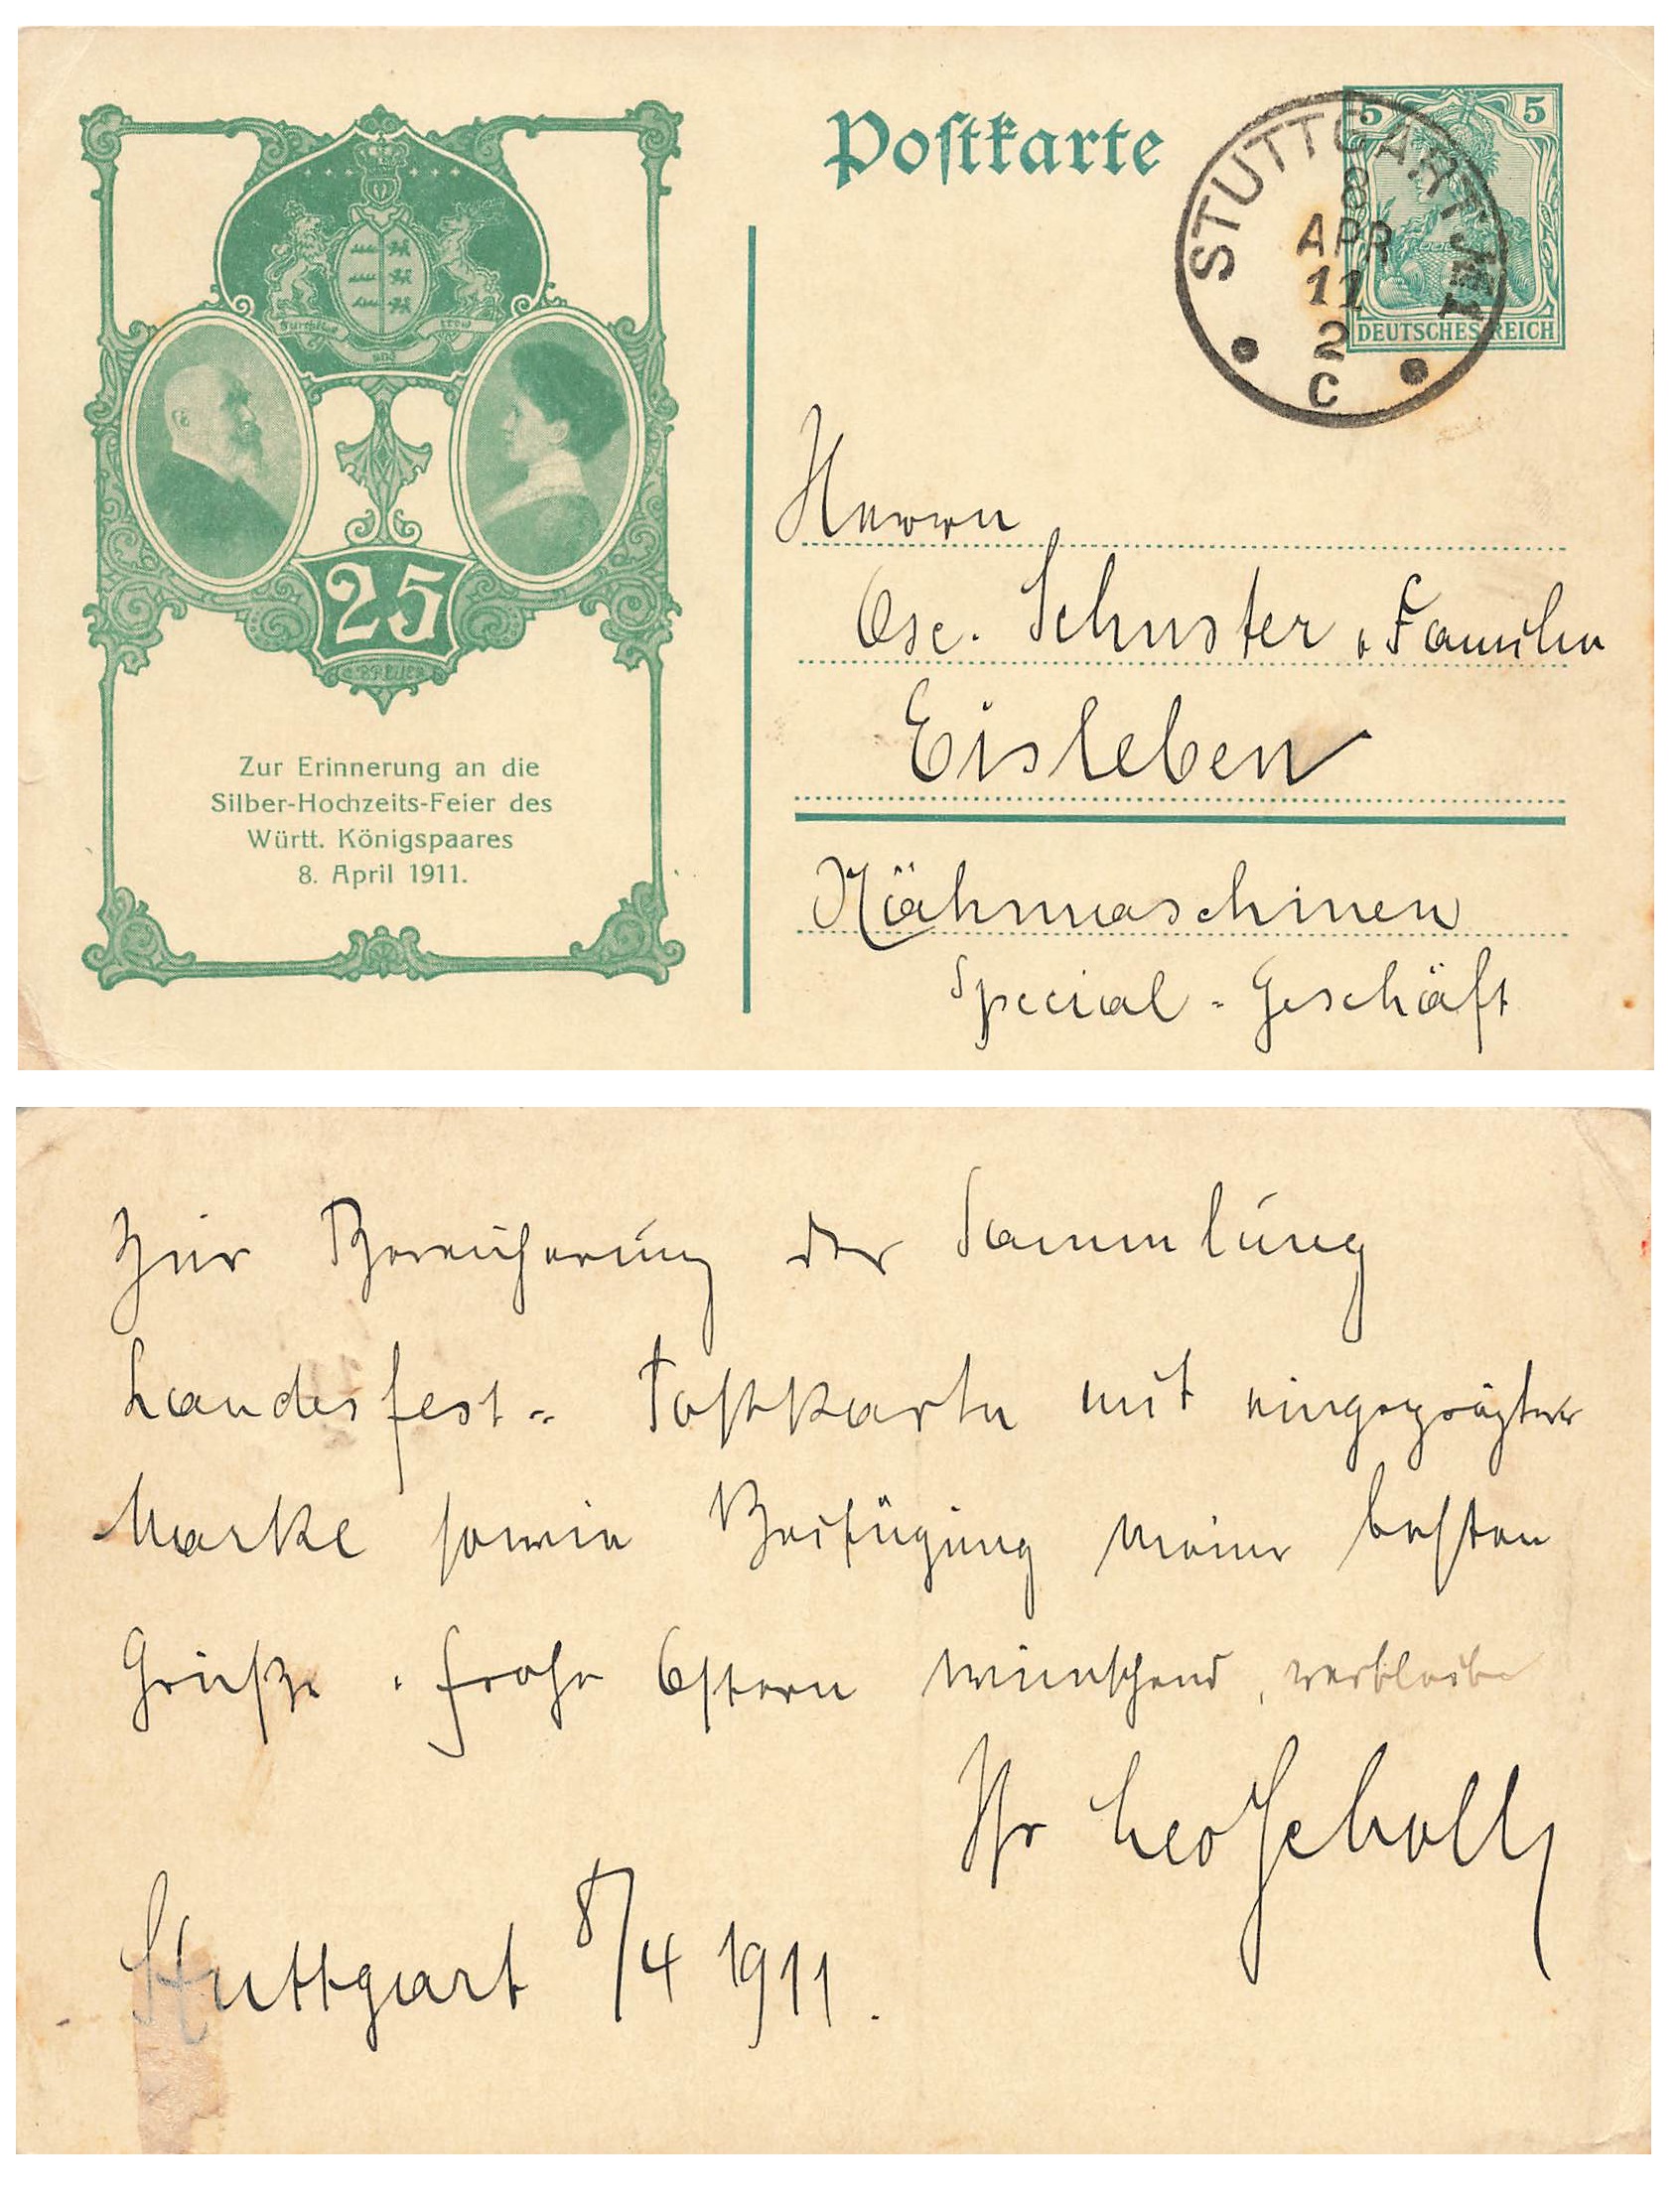 Postkarte
5 5
DEUTSCHES REICH
STUTTGART
8
APR
11
2
C
Furchtlos und trew
25
Zur Erinnerung an die
Silber-Hochzeits-Feier des
Württ. Königspaares
8. April 1911.
Herrn
Osc. Schuster & Familie
Eisleben
Nähmaschinen
Special-Geschäft
Zur Bereicherung der Sammlung
Landesfest- Postkarte mit eingeprägter
Marke sowie Beifügung meiner besten
Grüße & frohe Ostern wünschend, verbleibe
Ihr Leo Scholl
Stuttgart 8/4 1911.